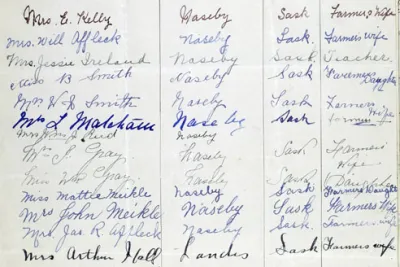 Mrs. E. Kelly Naseby Sask Farmer's Wife
Mrs. Will Affleck Naseby Sask. Farmers wife
Mrs. Jessie Ireland Naseby Sask. Teacher
Miss B Smith Naseby Sask Farmers Daughter
Smith Naseby Sask Farmers Wife
Mrs L Naseby Sask Farmers
Reid Naseby
Gray Naseby Sask Farmers Wife
Gray Naseby Sask Daughter
Miss Mattie Meikle Naseby Sask Farmers Daught
Mrs John Meikle Naseby Sask Farmers Wife
Mrs. Jas R Affleck Naseby Sask. Farmers wife
Mrs Arthur Hall Landis Sask Farmers wife